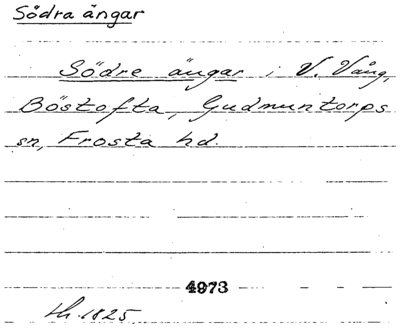 Södra ängar
Södre ängar i V. Vång,
Böstofta, Gudmuntorps
sn, Frosta hd.
4973
th. 1825